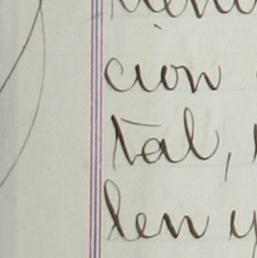 cion
tal,
len y